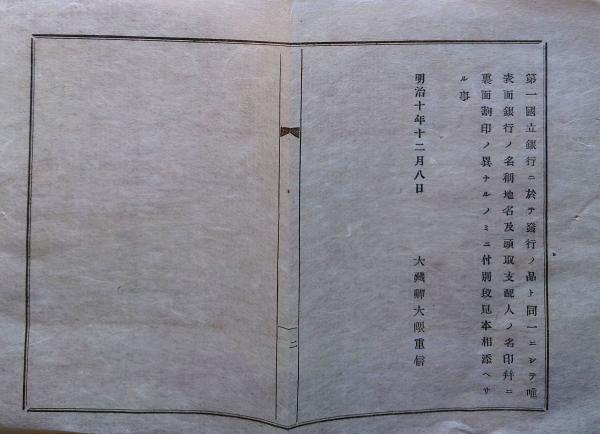 第一國立銀行ニ於テ發行ノ品ト同一ニシテ唯
表面銀行ノ名稱地名及頭取支配人ノ名印幷ニ
裏面割印ノ異ナルノミニ付別段見本相添ヘサ
ル事
明治十年十二月八日
大藏卿大隈重信
二